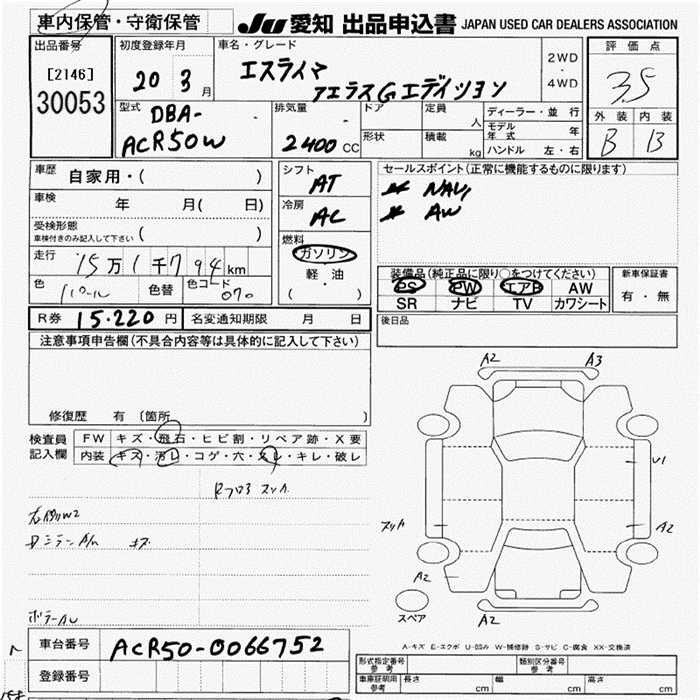 車内保管・守衛保管
JU 愛知 出品申込書 JAPAN USED CAR DEALERS ASSOCIATION
出品番号
[2146]
30053
初度登録年月
20 3 月
車名・グレード
エスティマ
アエラスGエディション
2WD
・
4WD
評価点
3.5
外装 内装
B B
型式
DBA-
ACR50W
排気量
2400 CC
ドア
形状
定員
人
積載
kg
ディーラー・並行
モデル年式 年
ハンドル 左・右
車歴
自家用・( )
車検
年 月( 日)
受検形態
車検付きのみ記入して下さい ( )
走行
15万1千794km
色
パール
色替
色コード
070
シフト
AT
冷房
AC
燃料
ガソリン
軽・油
( )
セールスポイント(正常に機能するものに限ります)
NAVI
AW
装備品(純正品に限り○をつけてください)
PS PW エアB AW
SR ナビ TV カワシート
新車保証書
有・無
R券 15.220 円
名変通知期限 月 日
後日品
注意事項申告欄(不具合内容等は具体的に記入して下さい)
修復歴 有 〔箇所 〕
検査員
記入欄
FW キズ・飛石・ヒビ割・リペア跡・X要
内装 キズ・汚レ・コゲ・穴・スレ・キレ・破レ
A2 A3
U1
A2
A2
A2
スペア
A-キズ E-エクボ U-凹み W-補修跡 S-サビ C-腐食 XX-交換済
車台番号
ACR50-0066752
登録番号
形式指定番号
参考
類別区分番号
参考
車庫証明用
参考
長さ cm
幅 cm
高さ cm